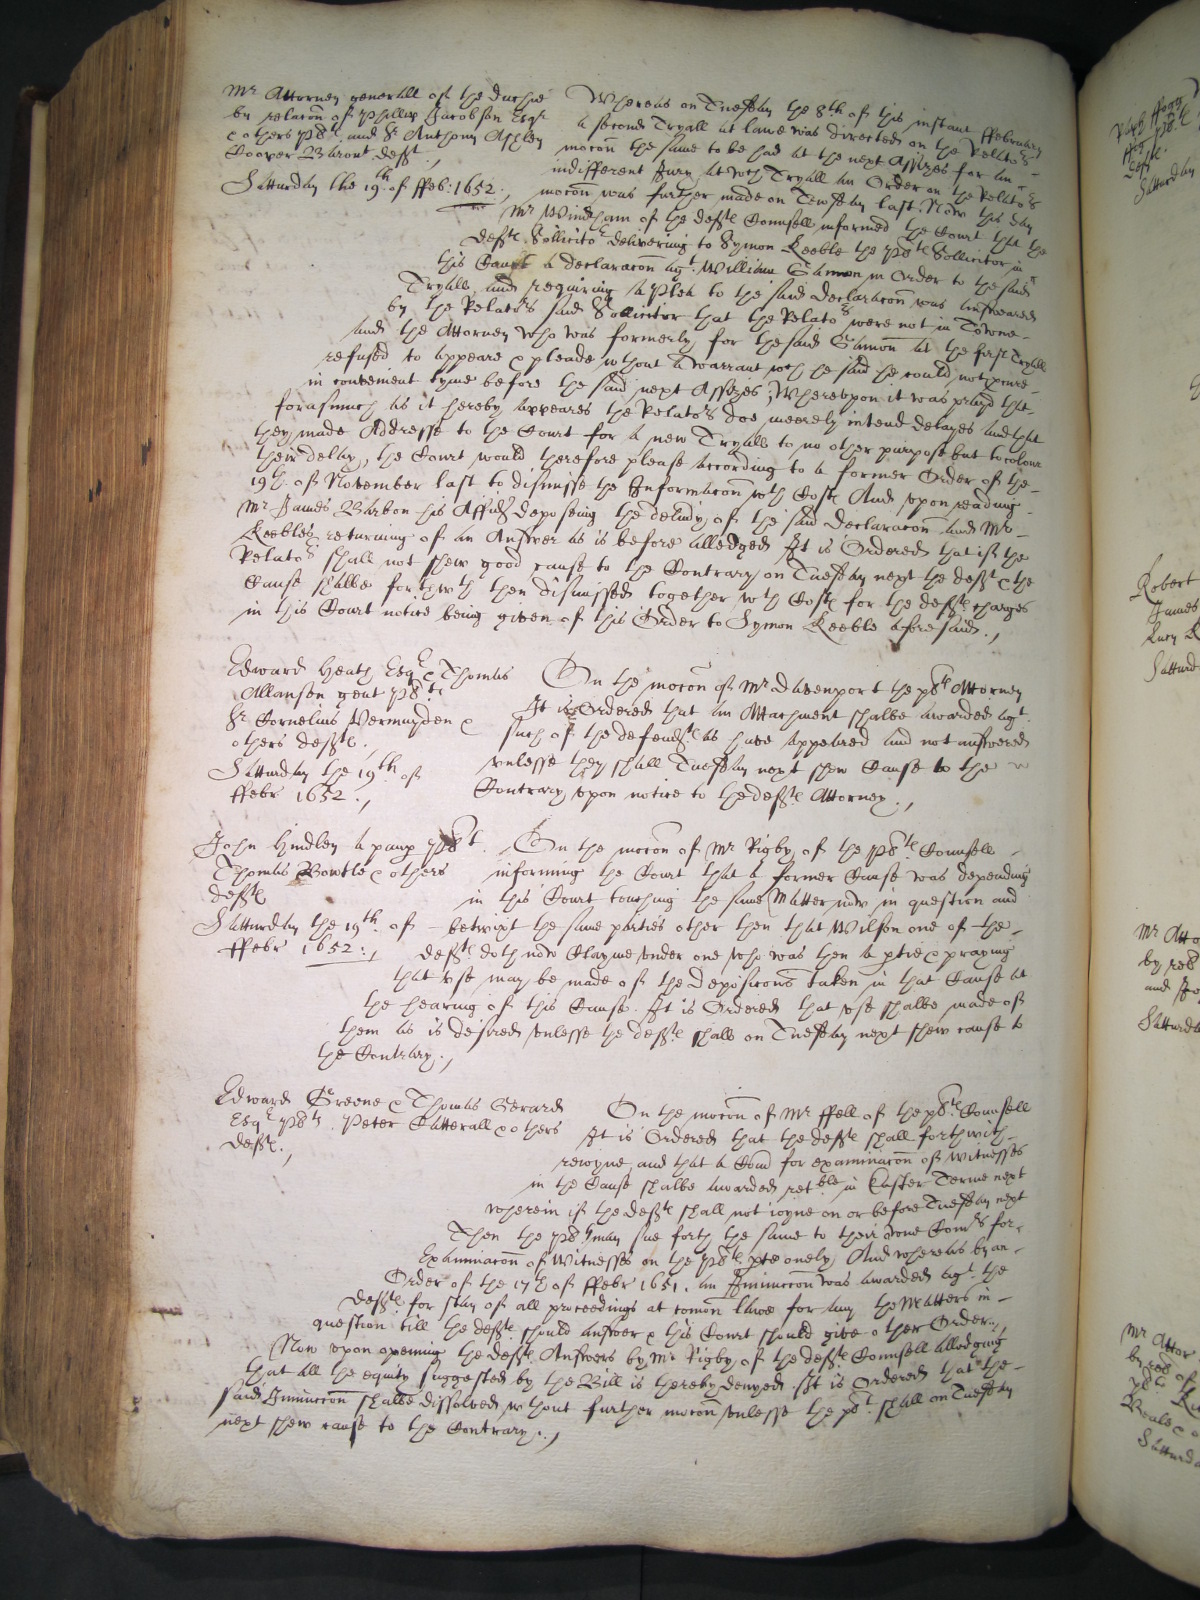 Mr Attorney generall of the Duchie
by relacon of Phillip Jacobson Esqr
& others pts and Sr Anthony Ashley
Cooper Baront defft.,
Satturday the 19th of ffeb: 1652.,
Whereas on Tuesday the 8th of this instant ffebruary
a second Tryall at lawe was directed on the Relators
mocon the same to be had at the next Assizes for an
indifferent Jury at wch Tryall an Order on the Relators
mocon was further made on Tewsday last. Now this day
Mr Windham of the deffts Counsell informed the Court that the
deffts Sollicitor delivering to Symon Keeble the pts Sollicitor in
this Cause a declaracon agt William Gamon in Order to the said
Tryall and requiring a plea to the said declaracon was answeared
by the Relators said Sollicitor that the Relators were not in Towne
and the Attorney who was formerly for the said Gamon at the first Tryall
refused to appeare & pleade wthout a warrant wch he said he could not pcure
in convenient tyme before the said next Assizes; Whereupon it was prayd that
forasmuch as it hereby appeares the Relators doe meerely intend delayes and that
they made Addresse to the Court for a new Tryall to no other purpose but to colour
their delay, the Court would therefore please according to a former Order of the
19th of November last to dismisse the Informacon wth Costs And upon reading
Mr James Barbon his Affidt deposeing the delivy of the said declaracon and Mr
Keebles returning of an Answer as is before alledged It is Ordered that if the
Relators shall not shew good cause to the Contrary on Tuesday next the defft & the
Cause shalbe forthwth then dismissed together wth Costs for the deffts charges
in this Court notice being given of this Order to Symon Keeble aforesaid.,
Edward Heath Esqr & Thomas
Allanson gent pts
Sr Cornelius Vermuyden &
others deffts.
Satturday the 19th of
ffebr 1652.,
On the mocon of Mr Davenport the pts Attorney
It is Ordered that an Attachment shalbe awarded agt
such of the defendts as have appeared and not answered
unlesse they shall Tuesday next shew Cause to the
Contrary upon notice to the deffts Attorney.,
John Hindley a paup pt
Thomas Bowtle & others
deffts
Satturday the 19th of
ffebr 1652.,
On the mocon of Mr Rigby of the pts Counsell
informing the Court that a former Cause was depending
in this Court touching the same Matter now in question and
betwixt the same parties other then that Wilson one of the
deffts doth now Clayme under one who was then a ptie & praying
that use may be made of the Deposicons taken in that Cause at
the hearing of this Cause. It is Ordered that use shalbe made of
them as is desired unlesse the deffts shall on Tuesday next shew cause to
the Contrary.,
Edward Greene & Thomas Gerard
Esqr pts. Peter Catterall & others
deffts.,
On the mocon of Mr ffell of the pts Counsell
It is Ordered that the deffts shall forthwith
reioyne and that a Com for examinacon of witnesses
in the Cause shalbe awarded retble in Easter Terme next
wherein if the deffts shall not ioyne on or before Tuesday next
Then the pts may sue forth the same to their owne Comrs for
Examinacon of Witnesses on the pts pte onely And whereas by an
Order of the 17th of ffebr 1651. an Iniunccon was awarded agt the
deffts for stay of all proceedings at comon lawe for any the Matters in
question till the deffts should answer & this Court should give other Order.,
Now upon opening the deffts Answers by Mr Rigby of the deffts Counsell alledging
that all the equity suggested by the Bill is thereby denyed It is Ordered that the
said Iniunccon shalbe dissolved wthout further mocon unlesse the pts shall on Tuesday
next shew cause to the Contrary.,
Satturday
Robert
James
Lucy
Satturd
Mr Atto
by rel
and
Satturda
Mr Attor
by rel of
Satturda